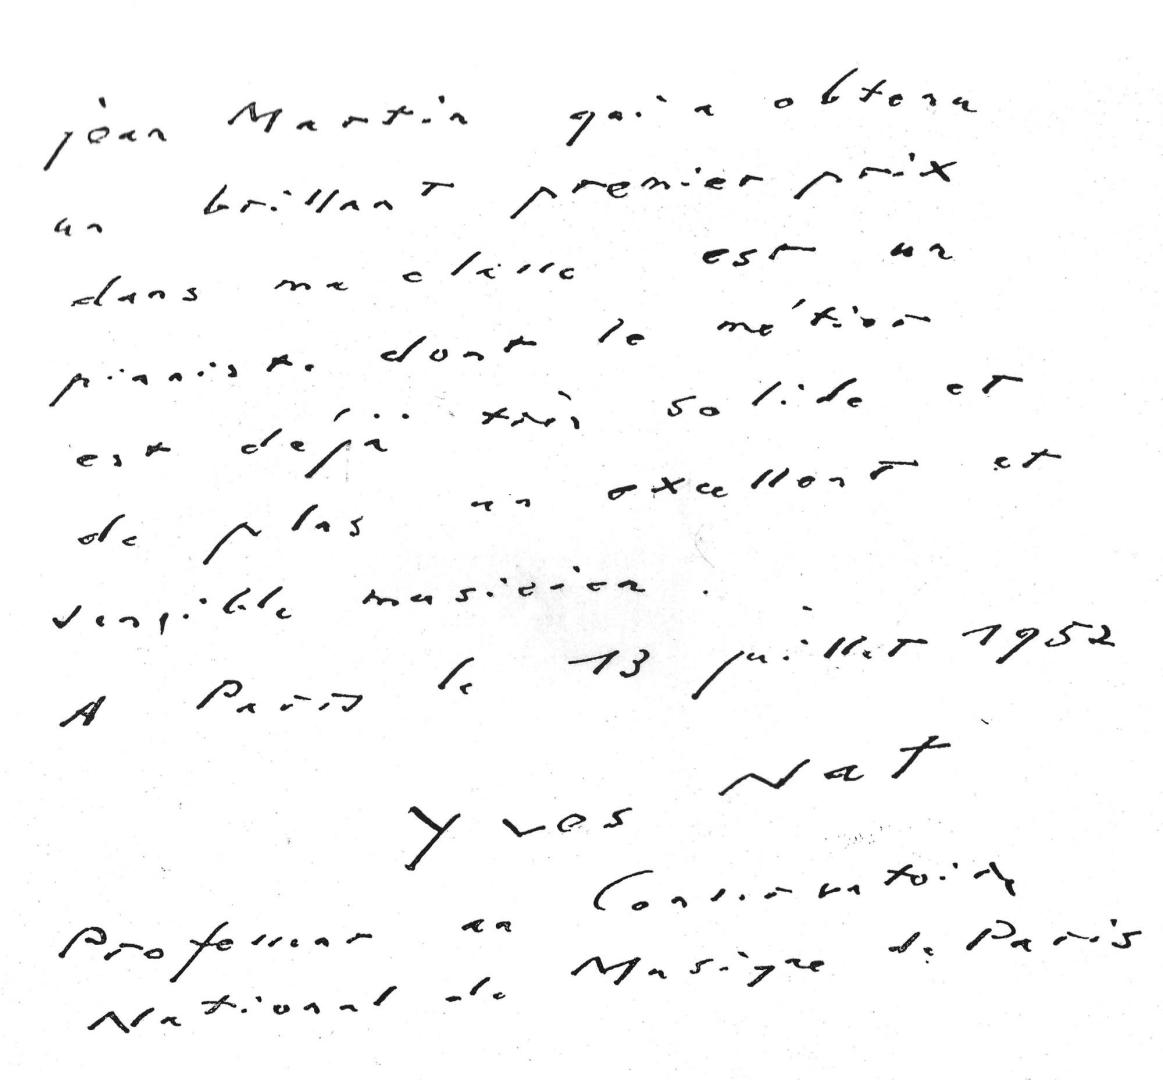 jean Martin qui a obtenu
un brillant premier prix
dans ma classe est un
pianiste dont le métier
est déjà très solide et
de plus un excellent et
sensible musicien.
A Paris le 13 juillet 1952
Yves Nat
Professeur au Conservatoire
National de Musique de Paris